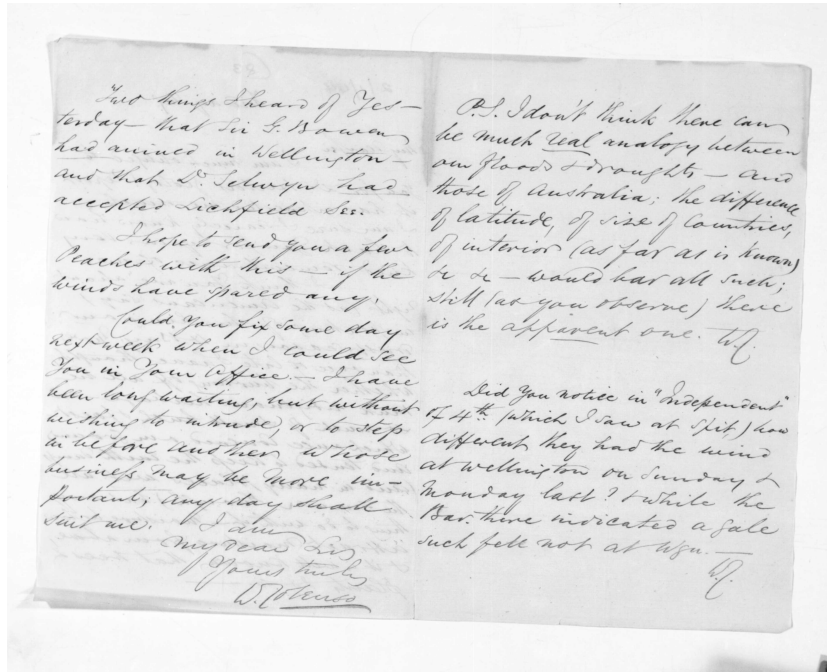 Two things I heard of Yes-
terday – that Sir G. Bowen
had arrived in Wellington –
and that Dr. Selwyn had
accepted Lichfield See.
I hope to send you a few
Peaches with this – if the
winds have spared any.
Could You fix some day
next week when I could see
You in Your Office – I have
been long waiting, but without
wishing to intrude, or to step
in before another whose
business may be more im-
portant; any day shall
suit me. I am
My dear Sir
Yours truly
W. Colenso
P.S. I don't think there can
be much real analogy between
our floods & droughts – and
those of Australia; the difference
of latitude, of size of Countries,
of interior (as far as is known)
&c &c – would bar all such;
still (as you observe) there
is the apparent one. W.C.
Did You notice in "Independent"
of 4th. (which I saw at Spit,) how
different they had the wind
at Wellington on Sunday &
Monday last? & while the
Bar. there indicated a gale
such fell not at Wgn. –
W.C.